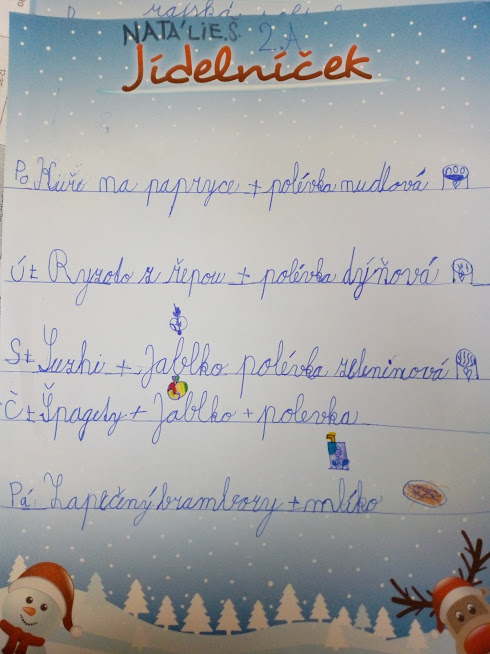 rajská
NATÁLIE.Š. 2.A
Jídelníček
Po Kuře na papryce + polévka nudlová
Út Ryzoto z řepou + polévka dýňová
St Suzhi + Jablko polévka zeleninová
Čt Špagety + Jablko + polevka
Pá Zapečený brambory + mlíko